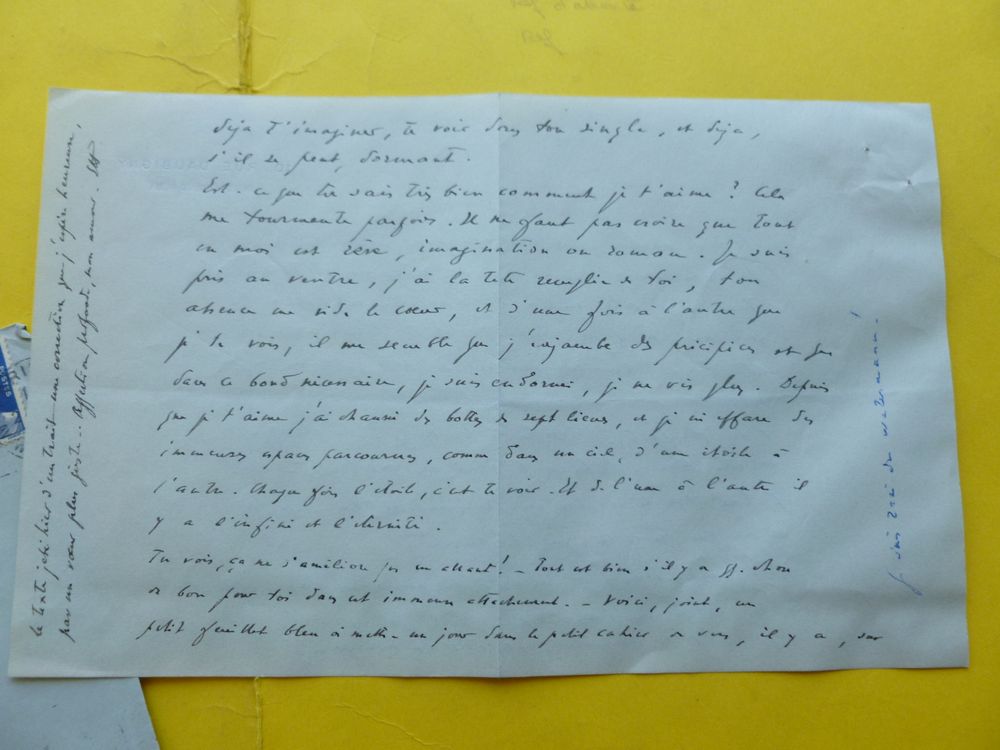 déjà t'imaginer, te voir dans ton single, et déjà,
s'il se peut, dormant.
Est-ce que tu sais très bien comment je t'aime ? Cela
me tourmente parfois. Il ne faut pas croire que tout
en moi est rêve, imagination ou roman. Je suis
pris au ventre, j'ai la tête remplie de toi, ton
absence me vide le cœur, et d'une fois à l'autre que
je te vois, il me semble que j'enjambe des précipices et que
dans ce bond nécessaire, je suis endormi, je ne vis plus. Depuis
que je t'aime j'ai chaussé des bottes de sept lieues, et je m'effare des
immenses espaces parcourus, comme dans un ciel, d'une étoile à
l'autre. Chaque fois l'étoile, c'est te voir. Et de l'une à l'autre il
y a l'infini et l'éternité.
Tu vois, ça ne s'améliore pas en allant ! - Tout est bien s'il y a qq. chose
de bon pour toi dans cet immense attachement. - Voici, joint, un
petit feuillet bleu à mettre un jour dans le petit cahier de vers, il y a, sur
le texte jeté hier d'un trait une correction que j'espère heureuse,
par un vœur plus juste... Affection profonde, mon amour.
Je suis ravi du watermann !